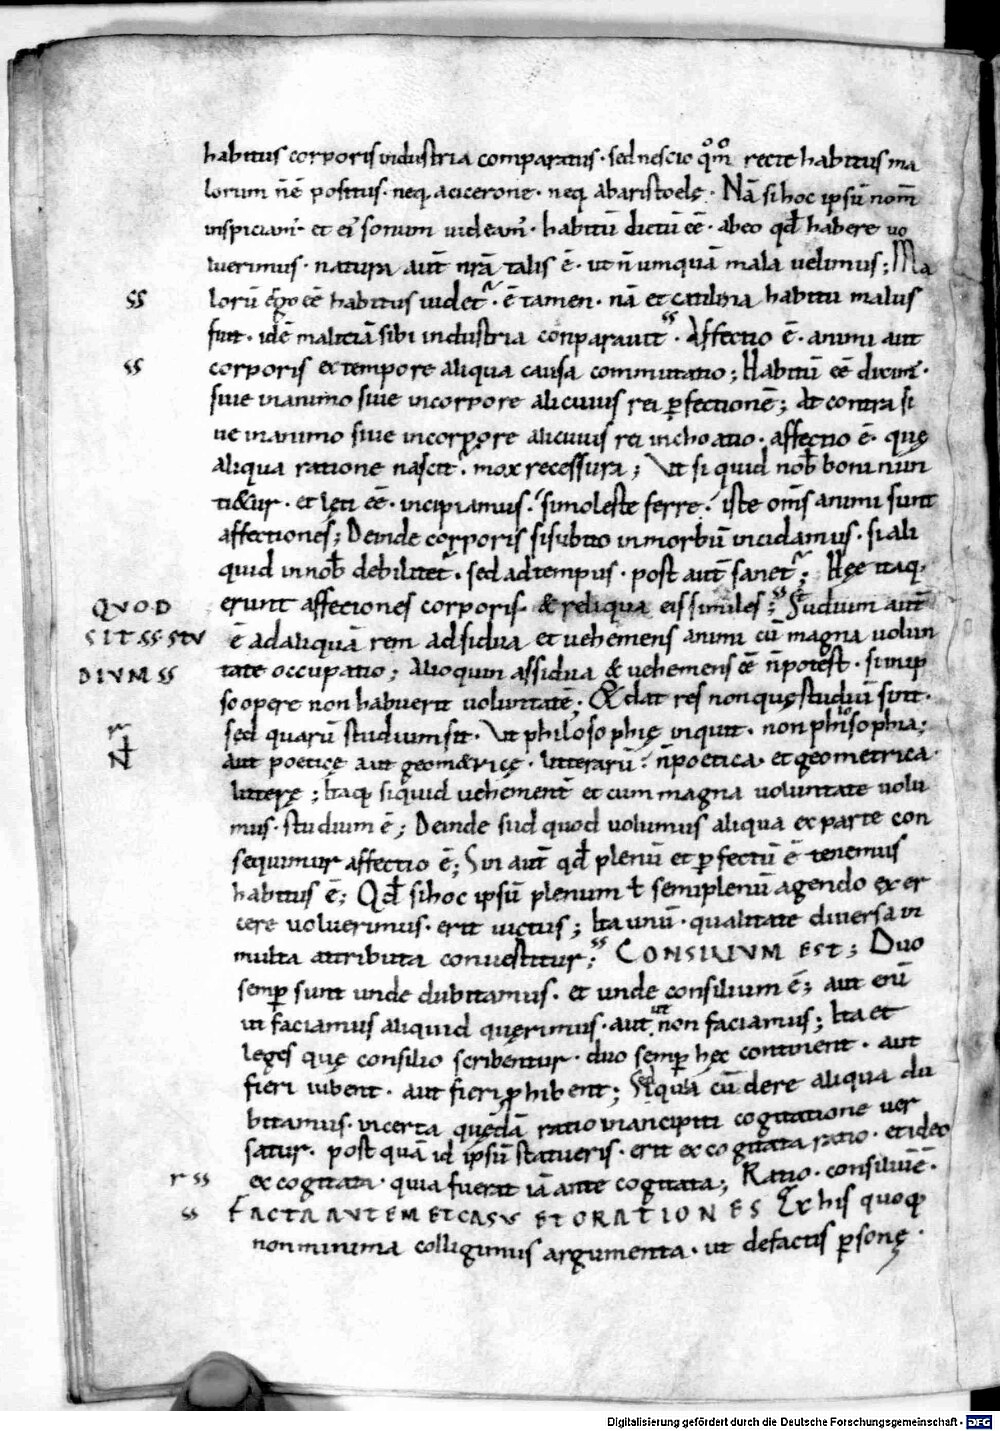 habitus corporis industria comparatus · sed nescio qͦmͦ recte habitus ma
lorum n̄ē positus · neq, a cicerone · neq abaristotelę · Nā si hoc ipsū nom̄
inspiciam̄ · et ei' sonum videam̄ · habitū dictū eē · abeo qđ habere uo
luerimus · natura aut̄ nr̄ā talis ē · ut n̄ umquā mala uelimus ; Ma
ss
lorū ego eē habitus uidet᷑ · ē tamen · nā et catilina habitu malus
fuit · idē maliciā sibi industria conparauit ss · Affectio ē · animi aut
ss
corporis ex tempore aliqua causa commutatio ; Habitū eē dicim̄ ·
siue in animo siue in corpore alicuius rei p̲fectionē ; At contra si
ue in animo siue in corpore alicuius rei inchoatio · affectio ē · quę
aliqua ratione nascit᷑ · mox recessura ; Vt si quid nob̄ boni nun
ti&ur · et lęti eē · incipiamus · si moleste ferre · iste om̄s animi sunt
affectiones ; Deinde corporis si subito in morbū incidamus · si ali
quid in nob̄ debilitet᷑ · sed ad tempus · post aut̄ sanet᷑ ; Hęc itaq,
QVOD
erunt affeciones corporis · & reliqua eis similes ; ss Studium aut̄
SIT SS STV
ē ad aliquā rem adsidua et uehemens animi cū magna volun
DIVM SS
tate occupatio ; Alioquin assidua & uehemens eē n̄ potest · si in ip
so opere non habuerit voluntatē ; & dat res non quę studiū sint ·
sed quarū studium sit · Vt philosophię inquit · non philosophia ;
aut poeticę aut geom&ricę · litterarū · n̄ poetica · et geometrica ·
litterę ; Itaq, si quid uehement̄ et cum magna uoluntate uolu
mus · studium ē ; Deinde si id quod volumus aliqua ex parte con
sequimur affectio ē ; Sin aut̄ qđ plenū et p̲fectū ē tenemus
habitus ē ; Qđ si hoc ipsū plenum ł semiplenū agendo exer
cere voluerimus · erit uictus ; Ita unū · qualitate diuersa in
multa attributa conuestitur ; ss CONSILIVM EST ; Duo
semp̲ sunt unde dubitamus · et unde consilium ē ; aut enī
ut faciamus aliquid quęrimus · aut ut non faciamus ; Ita et
leges quę consilio scribentur · duo semp̲ hęc continent · aut
fieri iubent · aut fieri p̲hibent ; Sed quia cū de re aliqua du
bitamus · incerta quędā ratio in ancipiti cogitatione uer
satur · post quā id ipsū statueris · erit excogitata ratio · et ideo
r ss
excogitata · quia fuerit iā ante cogitata ; Ratio · consiliū ē ·
ss
FACTA AVTEM ET CASV ET ORATIONES Ex his quoq,
non minima colligimus argumenta · ut de factis p̲sonę ·
Digitalisierung gefördert durch die Deutsche Forschungsgemeinschaft - DFG